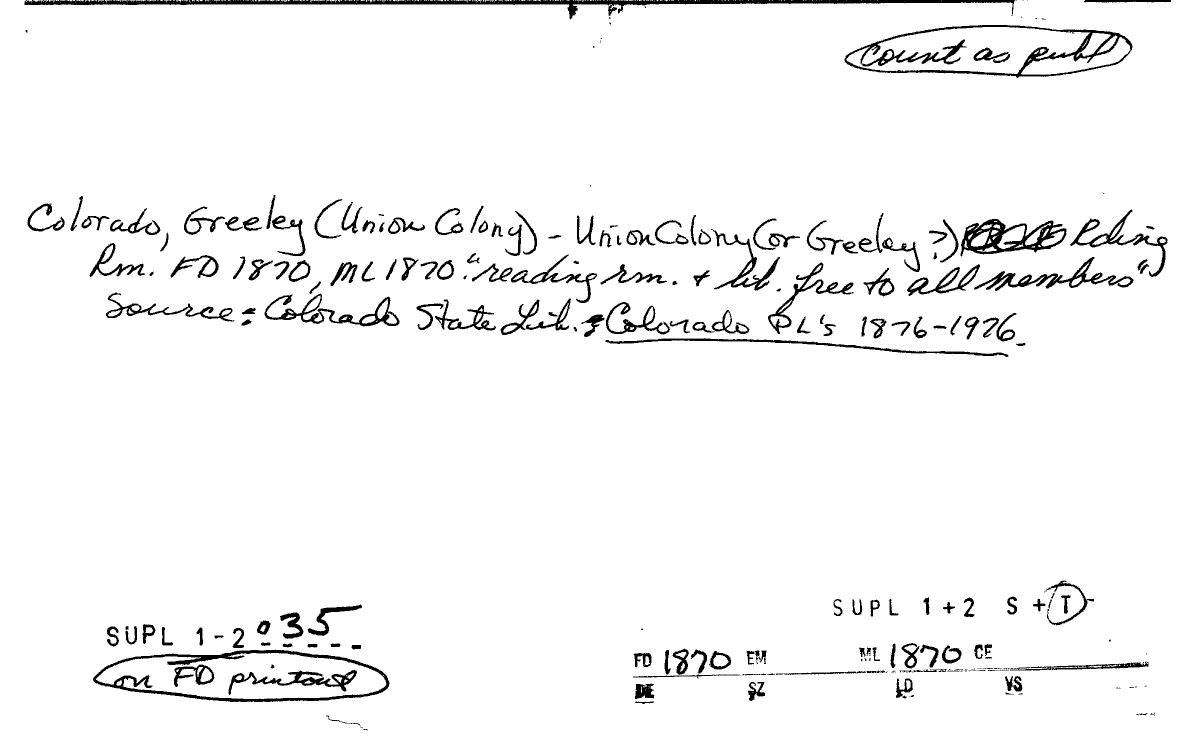 count as publ
Colorado, Greeley (Union Colony) - Union Colony (or Greeley?) Rding
Rm. FD 1870, ML 1870. "reading rm. + lib. free to all members"
Source: Colorado State Lib. : Colorado PL's 1876-1926.
SUPL 1-2 035
on FD printout
SUPL 1+2 S + T
FD 1870 EM ML 1870 CE
DE SZ LD VS